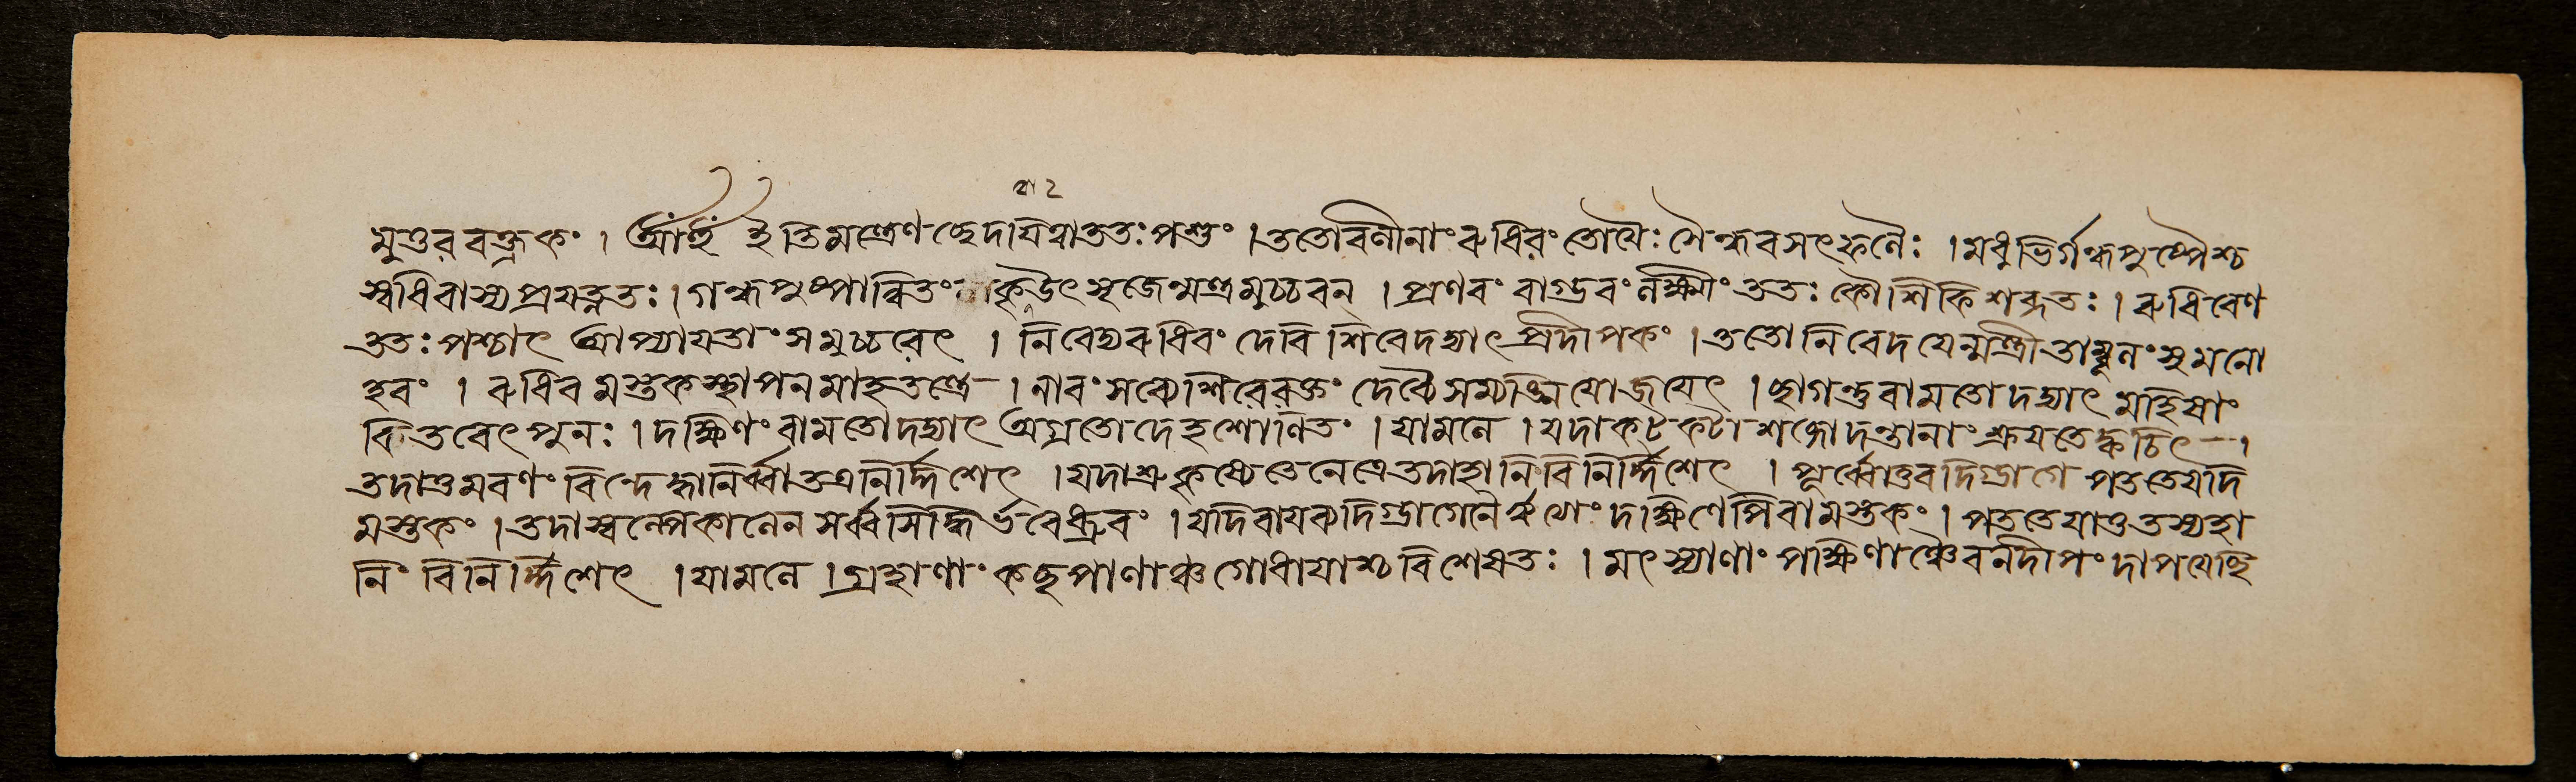 মুত্তরবক্ত্রকং । আঁ হ্রূঁ ইতি মন্ত্রেণ ছেদয়িত্বা ততঃ পশুং । ততো বলীনাং রুধিরং তোয়ৈঃ সৈন্ধবসৎফলৈঃ । মধুভির্গন্ধপুষ্পৈশ্চ
স্বধিবাস্য প্রযত্নতঃ । গন্ধপুষ্পান্বিতং কৃত্বোৎসৃজেন্মন্ত্রমুচ্চরন্ । প্রণবং বাগ্ভবং লক্ষ্মীং ততঃ কৌশিকি শব্দতঃ । রুধিরেণ
ততঃ পশ্চাৎ আপ্যায়তাং সমুচ্চরেৎ । নিবেদ্য রুধিরং দেবি শিবে দদ্যাৎ প্রদীপকং । ততো নিবেদয়েন্মন্ত্রী তাম্বূলং সুমনো
হরং । রুধিরমস্তকস্থাপনমাহ তন্ত্রে । নারং সব্যে শিরোরক্তং দেব্যৈ সম্যঙ্নিয়োজয়েৎ । ছাগন্তু বামতো দদ্যাৎ মহিষাং
বিতরেৎ পুনঃ । দক্ষিণং বামতো দদ্যাৎ অগ্রতো দেহশোণিতং । যামলে । যদা কটকটা শব্দো দন্তানাং শ্রূয়তে ক্বচিৎ ।
তদা তু মরণং বিন্দেদ্ধানির্ব্বা তত্র নির্দ্দিশেৎ । যদাশ্রু নেত্রে তদা হানিং বিনির্দ্দিশেৎ । পূর্ব্বোত্তরদিগ্ভাগে পততে যদি
মস্তকং । তদা স্বল্পেকালেন সর্ব্বসিদ্ধির্ভবেদ্ধ্রুবং । যদি বায়বদিগ্ভাগে নৈর্ঋথোং দক্ষিণেপি বা মস্তকং । পততে যাত্তু তস্য হা
নিং বিনির্দ্দিশেৎ । যামলে । গ্রহাণাং কচ্ছপাণাঞ্চ গোধায়াশ্চ বিশেষতঃ । মৎস্যাণাং পক্ষিণাঞ্চৈব নদীপং দাপয়েচ্ছি